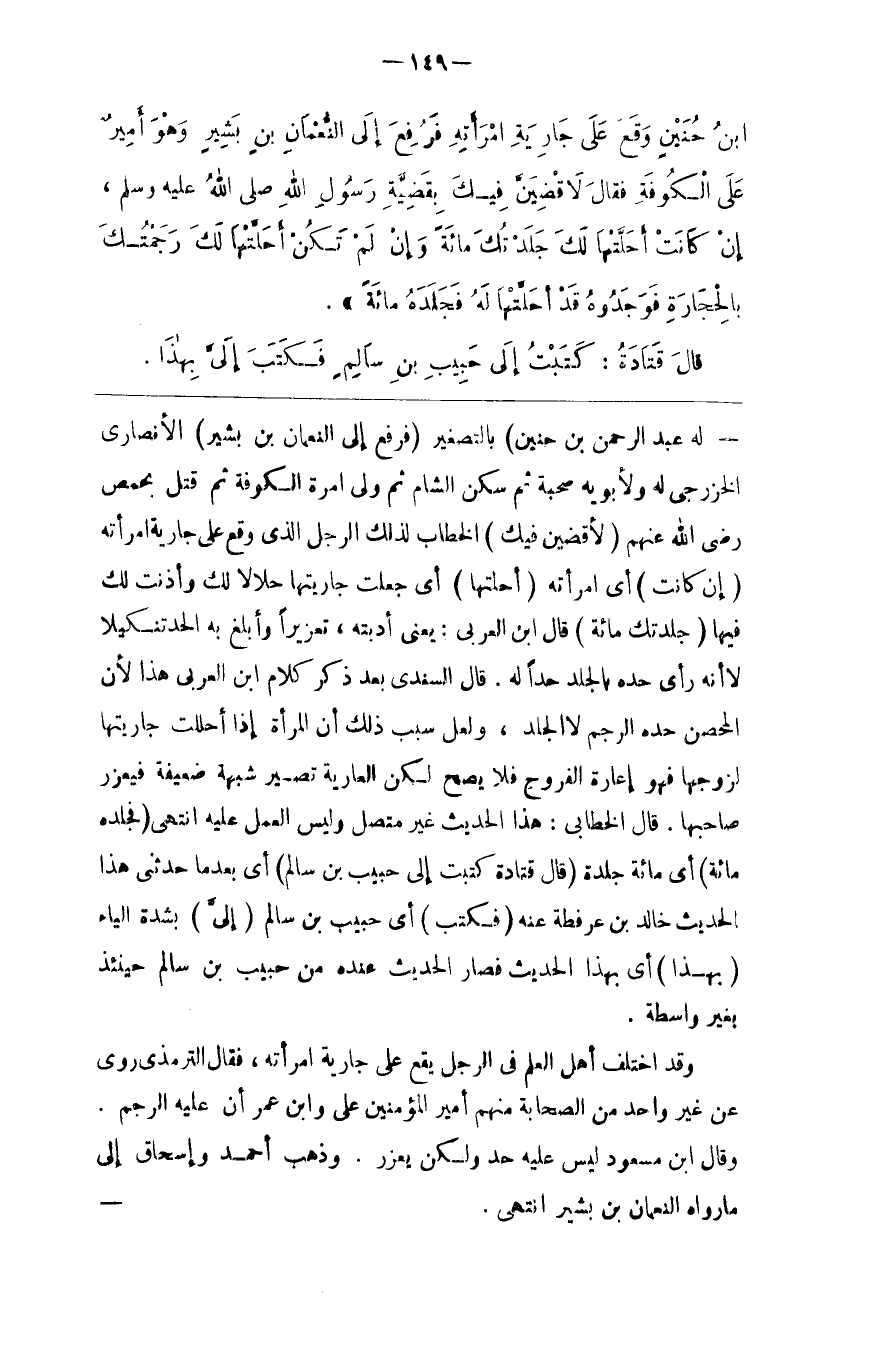 — ١٤٩ —
ابنُ حُنَيْنٍ وَقَعَ عَلَى جَارِيَةِ امْرَأَتِهِ فَرُفِعَ إِلَى النُّعْمَانِ بنِ بَشِيرٍ وَهْوَ أَمِيرٌ
عَلَى الْكُوفَةِ فقالَ لَاقْضِيَنَّ فِيكَ بِقَضِيَّةِ رَسُولِ اللهِ صلى اللهُ عليه وسلم ،
إِنْ كَانَتْ أَحَلَّتْهَا لَكَ جَلَدْتُكَ مائَةً وَإِنْ لَمْ تَكُنْ أَحَلَّتْهَا لَكَ رَجَمْتُكَ
بالْحِجَارَةِ فَوَجَدُوهُ قَدْ أحَلَّتْهَا لَهُ فَجَلَدَهُ مائَةً » .
قالَ قَتَادَةُ : كَتَبْتُ إِلَى حَبِيبِ بنِ سَالِمٍ فَكَتَبَ إِلَىَّ بِهٰذَا .
— له عبد الرحمن بن حنين) بالتصغير (فرفع إلى النعمان بن بشير) الأنصارى
الخزرجى له ولأبويه صحبة ثم سكن الشام ثم ولى امرة الكوفة ثم قتل بحمص
رضى الله عنهم ( لأقضين فيك ) الخطاب لذلك الرجل الذى وقع على جارية امرأته
( إن كانت ) أى امرأته ( أحلتها ) أى جعلت جاريتها حلالا لك وأذنت لك
فيها ( جلدتك مائة ) قال ابن العربى : يعنى أدبته ، تعزيراً وأبلغ به الحد تنكيلا
لا أنه رأى حده بالجلد حداً له . قال السندى بعد ذكر كلام ابن العربى هذا لأن
المحصن حده الرجم لا الجلد ، ولعل سبب ذلك أن المرأة إذا أحللت جاريتها
لزوجها فهو إعارة الفروج فلا يصح لكن العارية تصير شبهة ضعيفة فيعزر
صاحبها . قال الخطابى : هذا الحديث غير متصل وليس العمل عليه انتهى (فجلده
مائة) أى مائة جلدة (قال قتادة كتبت إلى حبيب بن سالم) أى بعدما حدثنى هذا
الحديث خالد بن عرفطة عنه ( فكتب ) أى حبيب بن سالم ( إلىَّ ) بشدة الياء
( بهذا ) أى بهذا الحديث فصار الحديث عنده من حبيب بن سالم حينئذ
بغير واسطة .
وقد اختلف أهل العلم فى الرجل يقع على جارية امرأته ، فقال الترمذى روى
عن غير واحد من الصحابة منهم أمير المؤمنين على وابن عمر أن عليه الرجم .
وقال ابن مسعود ليس عليه حد ولكن يعزر . وذهب أحمد وإسحاق إلى
مارواه النعمان بن بشير انتهى . —